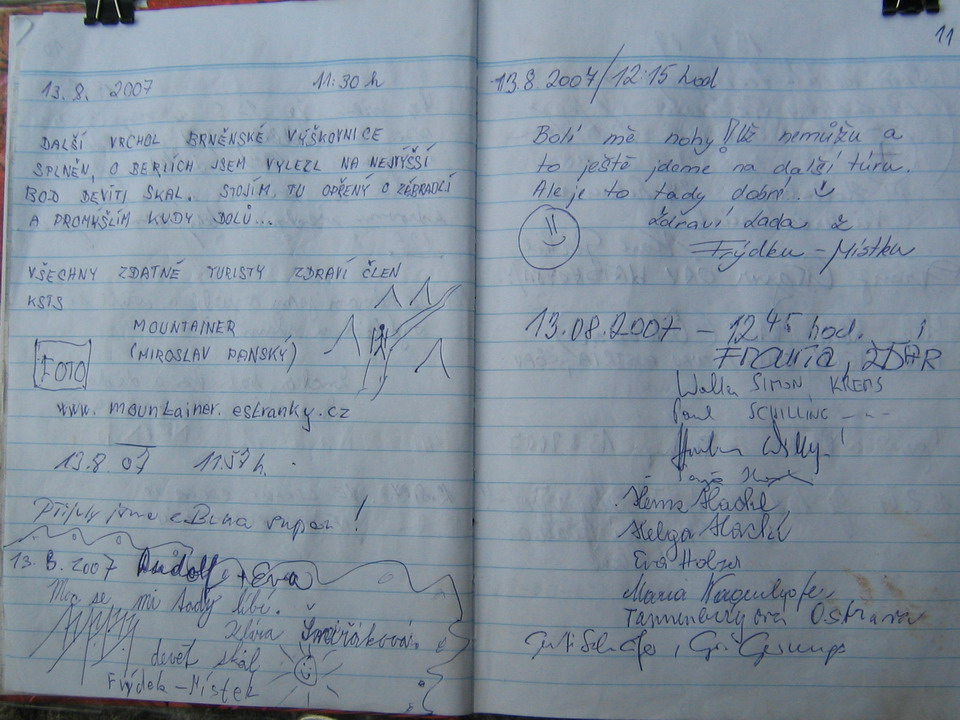 13.8. 2007 11:30 h
DALŠÍ VRCHOL BRNĚNSKÉ VÝŠKOVNICE
SPLNĚN, O BERLÍCH JSEM VYLEZL NA NEJVYŠŠÍ
BOD DEVÍTI SKAL. STOJÍM TU OPŘENÝ O ZÁBRADLÍ
A PROMÝŠLÍM KUDY DOLŮ...
VŠECHNY ZDATNÉ TURISTY ZDRAVÍ ČLEN
KSTS
MOUNTAINER
(MIROSLAV PANSKÝ)
FOTO
www.mountainer.estranky.cz
13.8 07 1157 h.
jsme z Brna super!
13.8.2007 Rudolf + Eva
Moc se mi tady líbí.
Klára
devět skal
Frýdek-Místek
11
13.8 2007/12:15 hod
Bolí mě nohy!! Už nemůžu a
to ještě jdeme na další túru.
Ale je to tady dobré..
Zdraví Lada z
Frýdku-Místku
13.08.2007 - 12 45 hod.
FRANTA, ŽĎÁR
SIMON KREMS
Paul SCHILLING -"-
Helga
Eva
Maria
Tannenbergová Ostrava